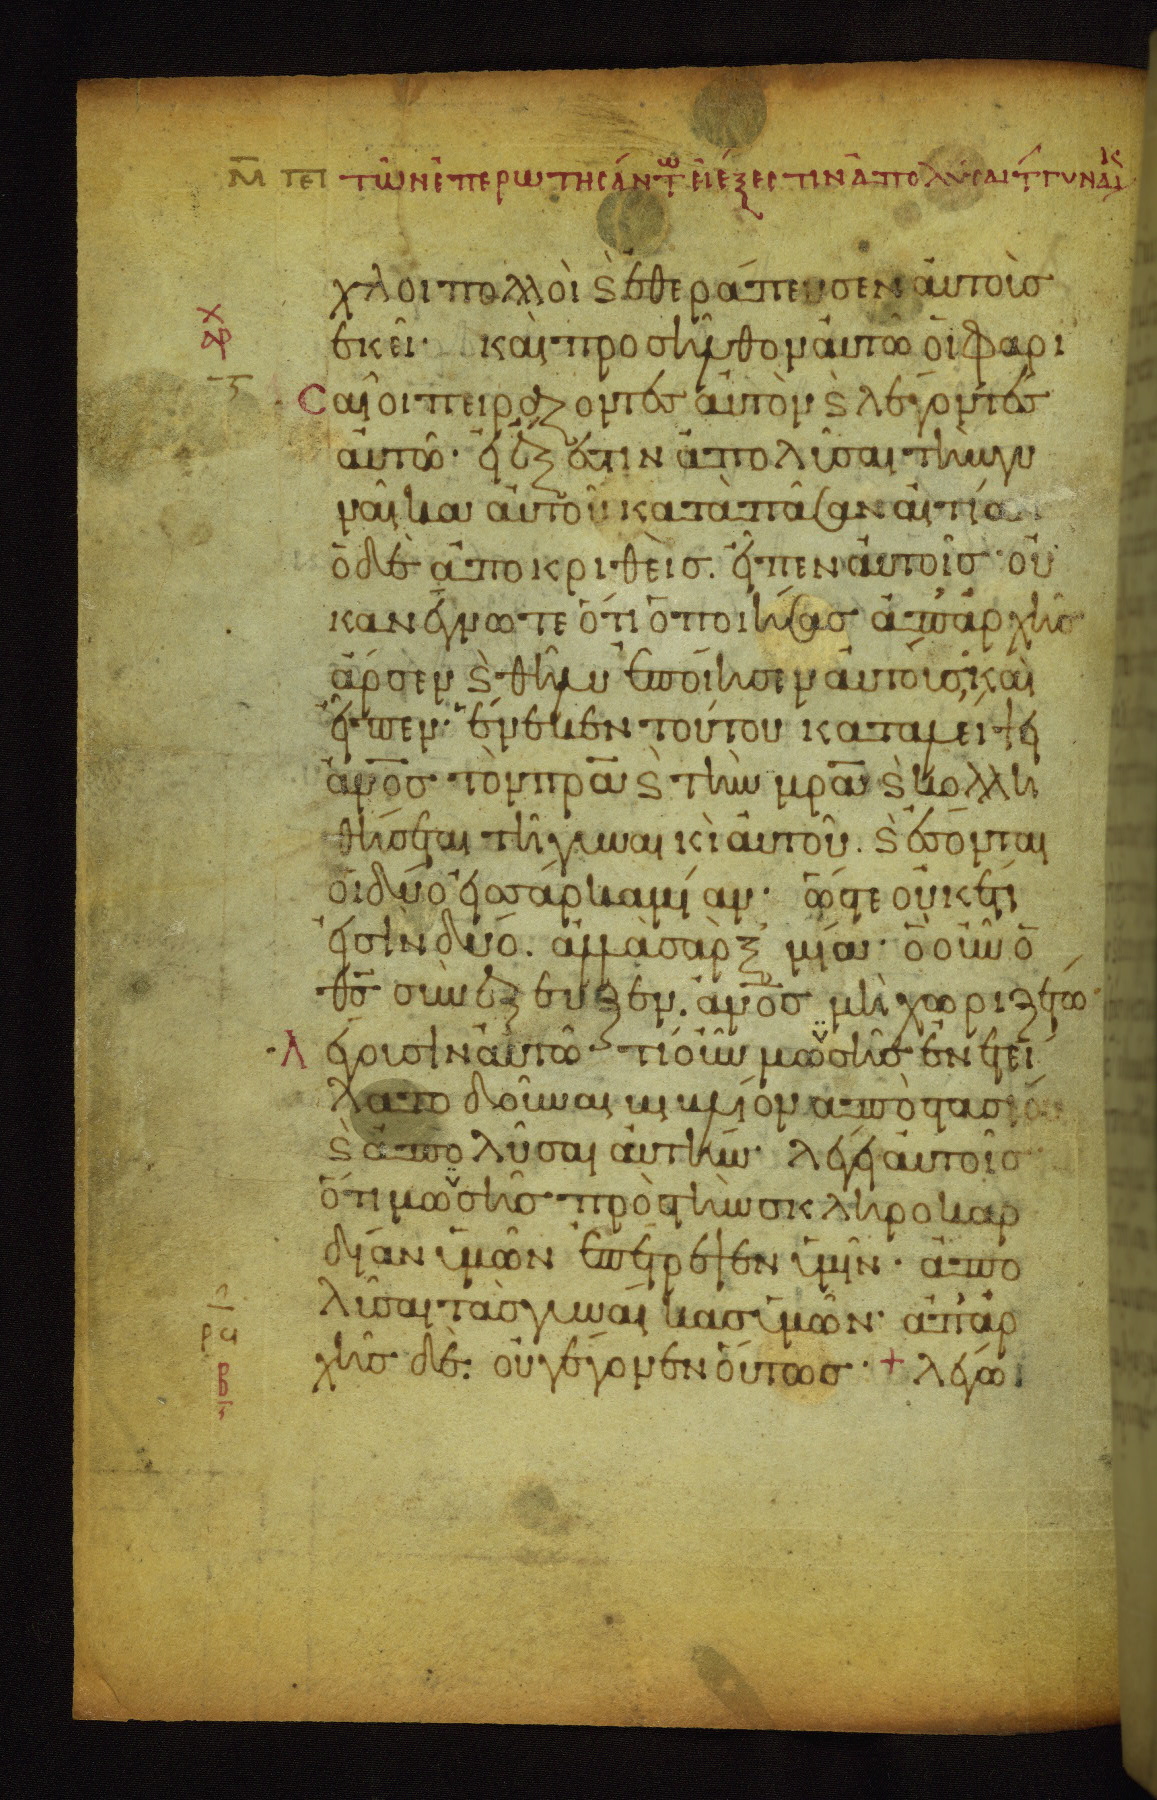 Μ ΠΕΙ τῶν ἐπερωτησάντ εἰ ἔξεστιν ἀπολῦσαι τ γυναι
χλοι πολλοὶ ϛ ἐθεράπευσεν αὐτοὺσ
ἐκεῖ· καὶ προσῆλθον αὐτῶ οἱ φαρι
σαῖοι πειράζοντεσ αὐτὸν ϛ λέγοντεσ
αὐτῶ· εἰ ἔξεστιν ἀπολῦσαι τὴν γυ
ναῖκα αὐτοῦ κατὰ πᾶσαν αἰτίαν
ὁ δὲ ἀποκριθεὶσ. εἶπεν αὐτοῖσ· οὐ
κ ἀνέγνωτε ὅτι ὁ ποιήσασ ἀπ' ἀρχῆσ
ἄρσεν ϛ θῆλυ ἐποίησεν αὐτούσ, καὶ
εἶπεν· ἕνεκεν τούτου καταλείψει
ἄνοσ τὸν πρα ϛ τὴν μρα ϛ κολλη
θήσεται τῆ γυναικὶ αὐτοῦ. ϛ ἔσονται
οἱ δύο εἰσ σάρκα μίαν· ὥστε οὐκέτι
εἰσὶν δύο. ἀλλὰ σὰρξ μία· ὃ οὖν ὁ
θσ συνέζευξεν. ἄνοσ μὴ χωριζέτω·
Λέγουσιν αὐτῶ· τί οὖν μωϋσῆσ ἐνετεί
λατο δοῦναι βιβλίον ἀποστασίου
ϛ ἀπολῦσαι αὐτήν· λέγει αὐτοῖσ
ὅτι μωϋσῆσ πρὸσ τὴν σκληροκαρ
δίαν ὑμῶν ἐπέτρεψεν ὑμῖν· ἀπο
λῦσαι τὰσ γυναῖκασ ὑμῶν· ἀπ' ἀρ
χῆσ δὲ. οὐ γέγονεν οὕτωσ· + λέγω